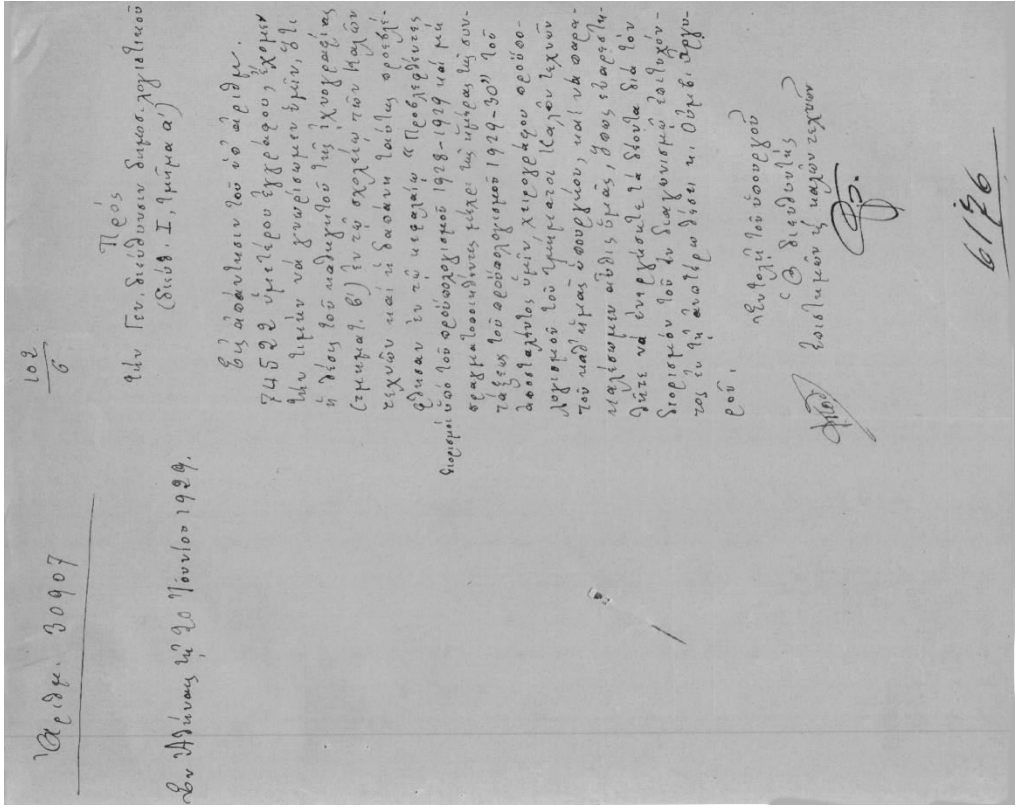 Ἀριθμ. 30907
Ἐν Ἀθήναις τῇ 20 Ἰουνίου 1929.
102
6
Πρὸς
τὴν Γεν. διεύθυνσιν δημοσ. λογιστικοῦ
(διεύθ. Ι, τμῆμα α')
Εἰς ἀπάντησιν τοῦ ὑπ' ἀριθμ.
74522 ὑμετέρου ἐγγράφου, ἔχομεν
τὴν τιμὴν νὰ γνωρίσωμεν ὑμῖν, ὅτι
ἡ θέσις τοῦ καθηγητοῦ τῆς ἰχνογραφίας
(τμηματ. β') ἐν τῷ σχολείῳ τῶν Καλῶν
τεχνῶν καὶ ἡ δαπάνη ταύτης προεβλέ-
φθησαν ἐν τῷ κεφαλαίῳ «Προβλεφθέντες
διορισμοὶ ὑπὸ τοῦ προϋπολογισμοῦ 1928-1929 καὶ μὴ
πραγματοποιηθέντες μέχρι τῆς ἡμέρας τῆς συν-
τάξεως τοῦ προϋπολογισμοῦ 1929-30" τοῦ
ἀποσταλέντος ὑμῖν χειρογράφου προϋπο-
λογισμοῦ τοῦ τμήματος Καλῶν τεχνῶν
τοῦ καθ' ἡμᾶς ὑπουργείου, καὶ νὰ παρα-
καλέσωμεν αὖθις ὑμᾶς, ὅπως εὐαρεστη-
θῆτε νὰ ἐνεργήσητε τὰ δέοντα διὰ τὸν
διορισμὸν τοῦ ἐν διαγωνισμῷ ἐπιτυχόν-
τος ἐν τῇ ἀνωτέρω θέσει κ. Οὐμβ. Ἀργυ-
ροῦ.
Ἐντολῇ τοῦ ὑπουργοῦ
Ὁ διευθυντὴς
Ἐπιστημῶν κ' καλῶν τεχνῶν
6/7/6